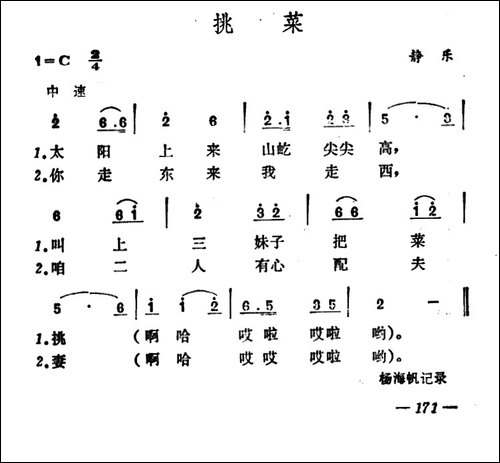 挑 菜
1=C 2/4
静 乐
中 速
2̇ 6.6 | 2̇ 6 | 2̇.1̇ 2̇3̇ | 5 · 3 |
1.太 阳 上 来 山屹 尖尖 高,
2.你 走 东 来 我 走 西,
6 61̇ | 2̇ 3̇2̇ | 66 1̇2̇ |
1.叫 上 三 妹子 把 菜
2.咱 二 人 有心 配 夫
5 · 6 | 1̇ 1̇2̇ | 6.5 35 | 2 — ‖
1.挑 (啊 哈 哎 啦 哎啦 哟)。
2.妻 (啊 哈 哎 哎 哎啦 哟)。
杨海帆记录
— 171 —